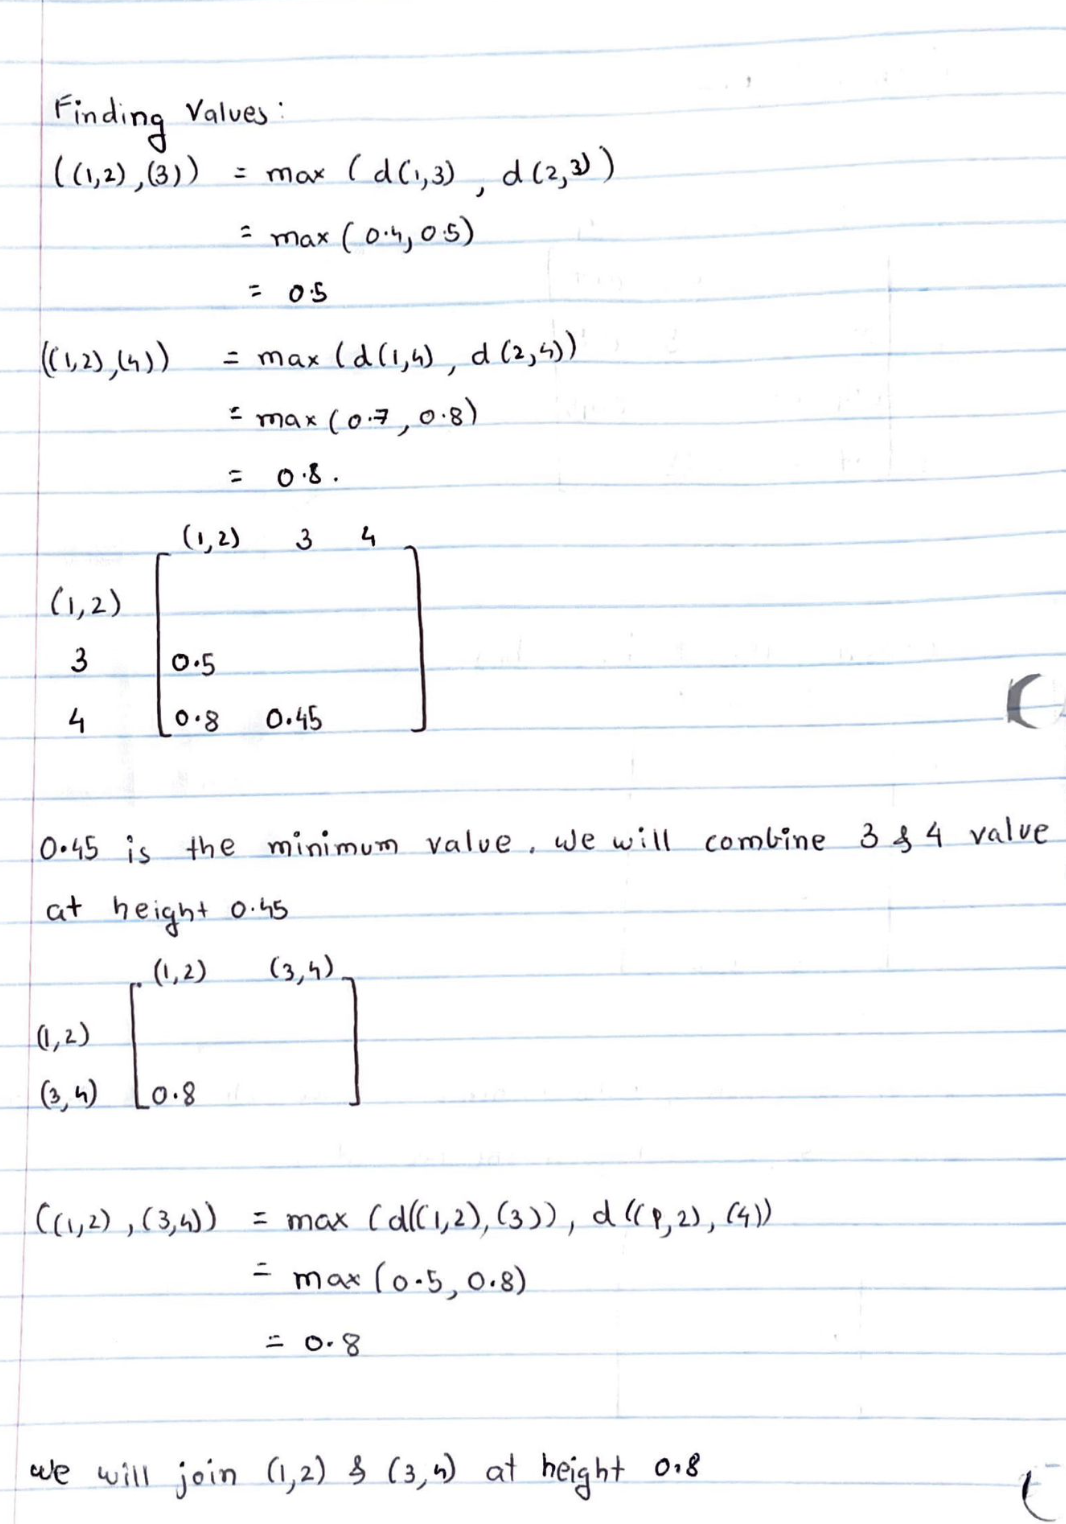 Finding Values:
((1,2),(3)) = max (d(1,3), d(2,3))
= max (0.4, 0.5)
= 0.5
((1,2),(4)) = max (d(1,4), d(2,4))
= max (0.7, 0.8)
= 0.8.
(1,2) 3 4
(1,2)
3 0.5
4 0.8 0.45
0.45 is the minimum value, we will combine 3 & 4 value
at height 0.45
(1,2) (3,4)
(1,2)
(3,4) 0.8
((1,2),(3,4)) = max (d((1,2),(3)), d((1,2),(4))
= max (0.5, 0.8)
= 0.8
we will join (1,2) & (3,4) at height 0.8